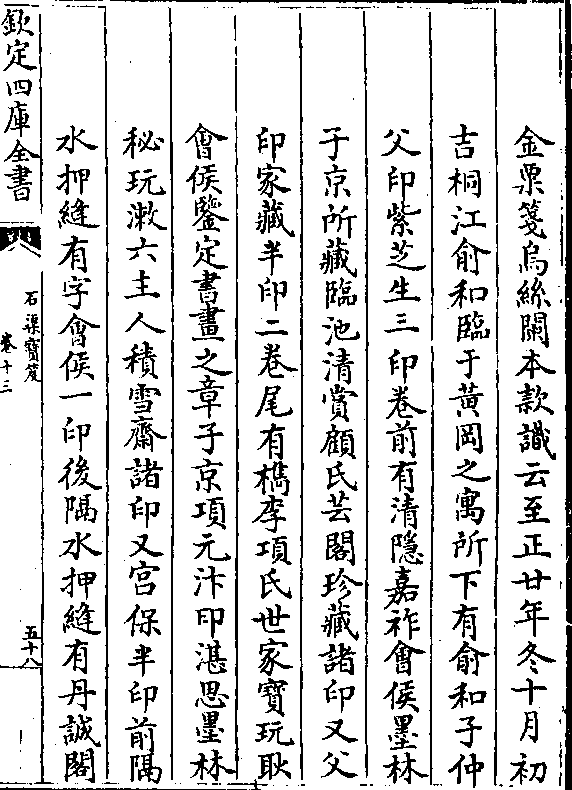 金粟箋烏絲闌本款識云至正廿年冬十月初
吉桐江俞和臨于黃岡之寓所下有俞和子仲
父印紫芝生三印卷前有清隱嘉祚會侯墨林
子京所藏臨池清賞顧氏芸閣珍藏諸印又父
印家藏半印二卷尾有檇李項氏世家寶玩耿
會侯鑒定書畫之章子京項元汴印湛思墨林
秘玩漱六主人積雪齋諸印又宮保半印前隔
水押縫有字會侯一印後隔水押縫有丹誠閣
欽定四庫全書
石渠寶笈
卷十三
五十八